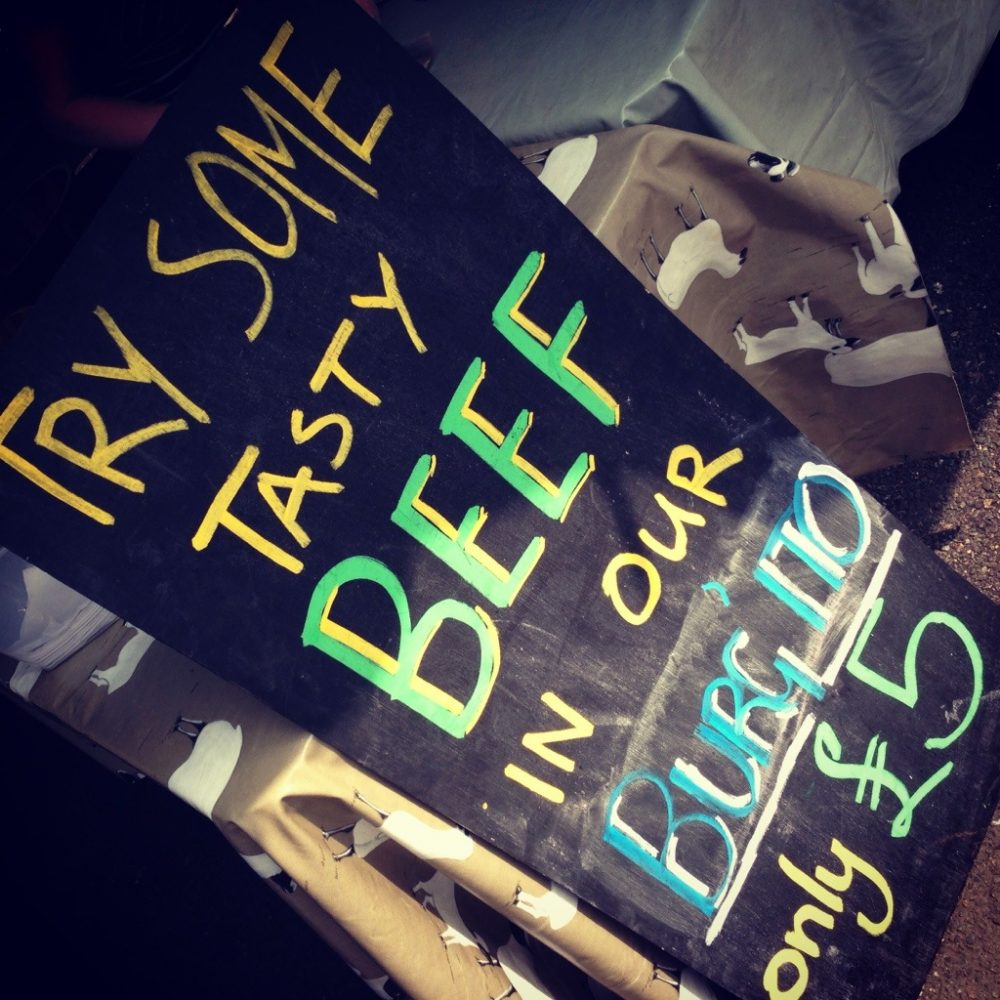 TRY SOME
TASTY
BEEF
IN OUR
BURG'ITO
only £5